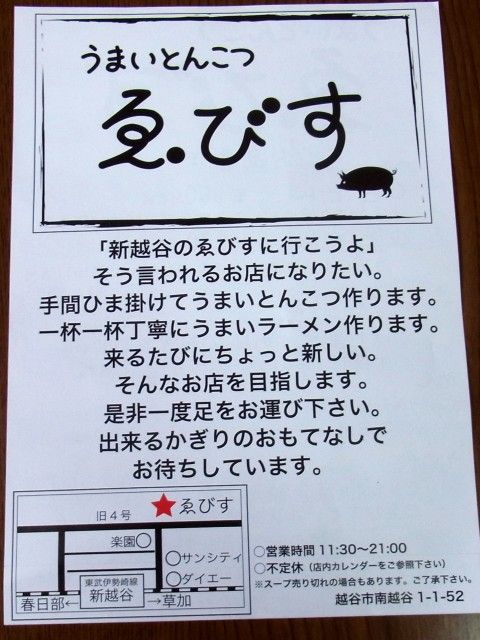 うまいとんこつ
ゑびす
「新越谷のゑびすに行こうよ」
そう言われるお店になりたい。
手間ひま掛けてうまいとんこつ作ります。
一杯一杯丁寧にうまいラーメン作ります。
来るたびにちょっと新しい。
そんなお店を目指します。
是非一度足をお運び下さい。
出来るかぎりのおもてなしで
お待ちしています。
旧4号
ゑびす
楽園○
○サンシティ
○ダイエー
東武伊勢崎線
新越谷
春日部←
→草加
○営業時間 11:30〜21:00
○不定休（店内カレンダーをご参照下さい）
※スープ売り切れの場合もあります。ご了承下さい。
越谷市南越谷 1-1-52